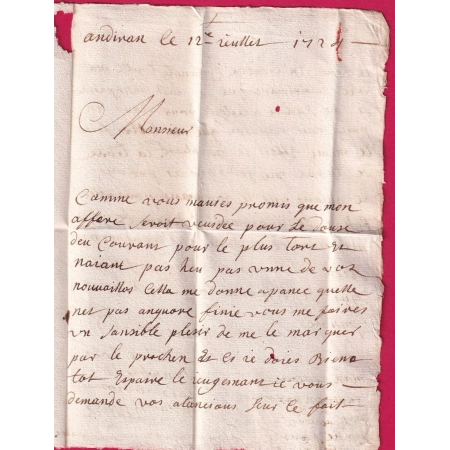 andiran le 12e jeullet 1724
Monsieur
Comme vous mauies promis que mon
affere seroit veusdee pour le douse
deu Courant pour le plus tart et
naiant pas heu pas unne de vos
nouuailles Cella me donne a pance quelle
net pas anquore finie vous me faires
un sansible plesir de me le marquer
par le prochen et si ie doies Biento
tot Espaire le ieugemant ie vous
demande vos atancions seur ce fait